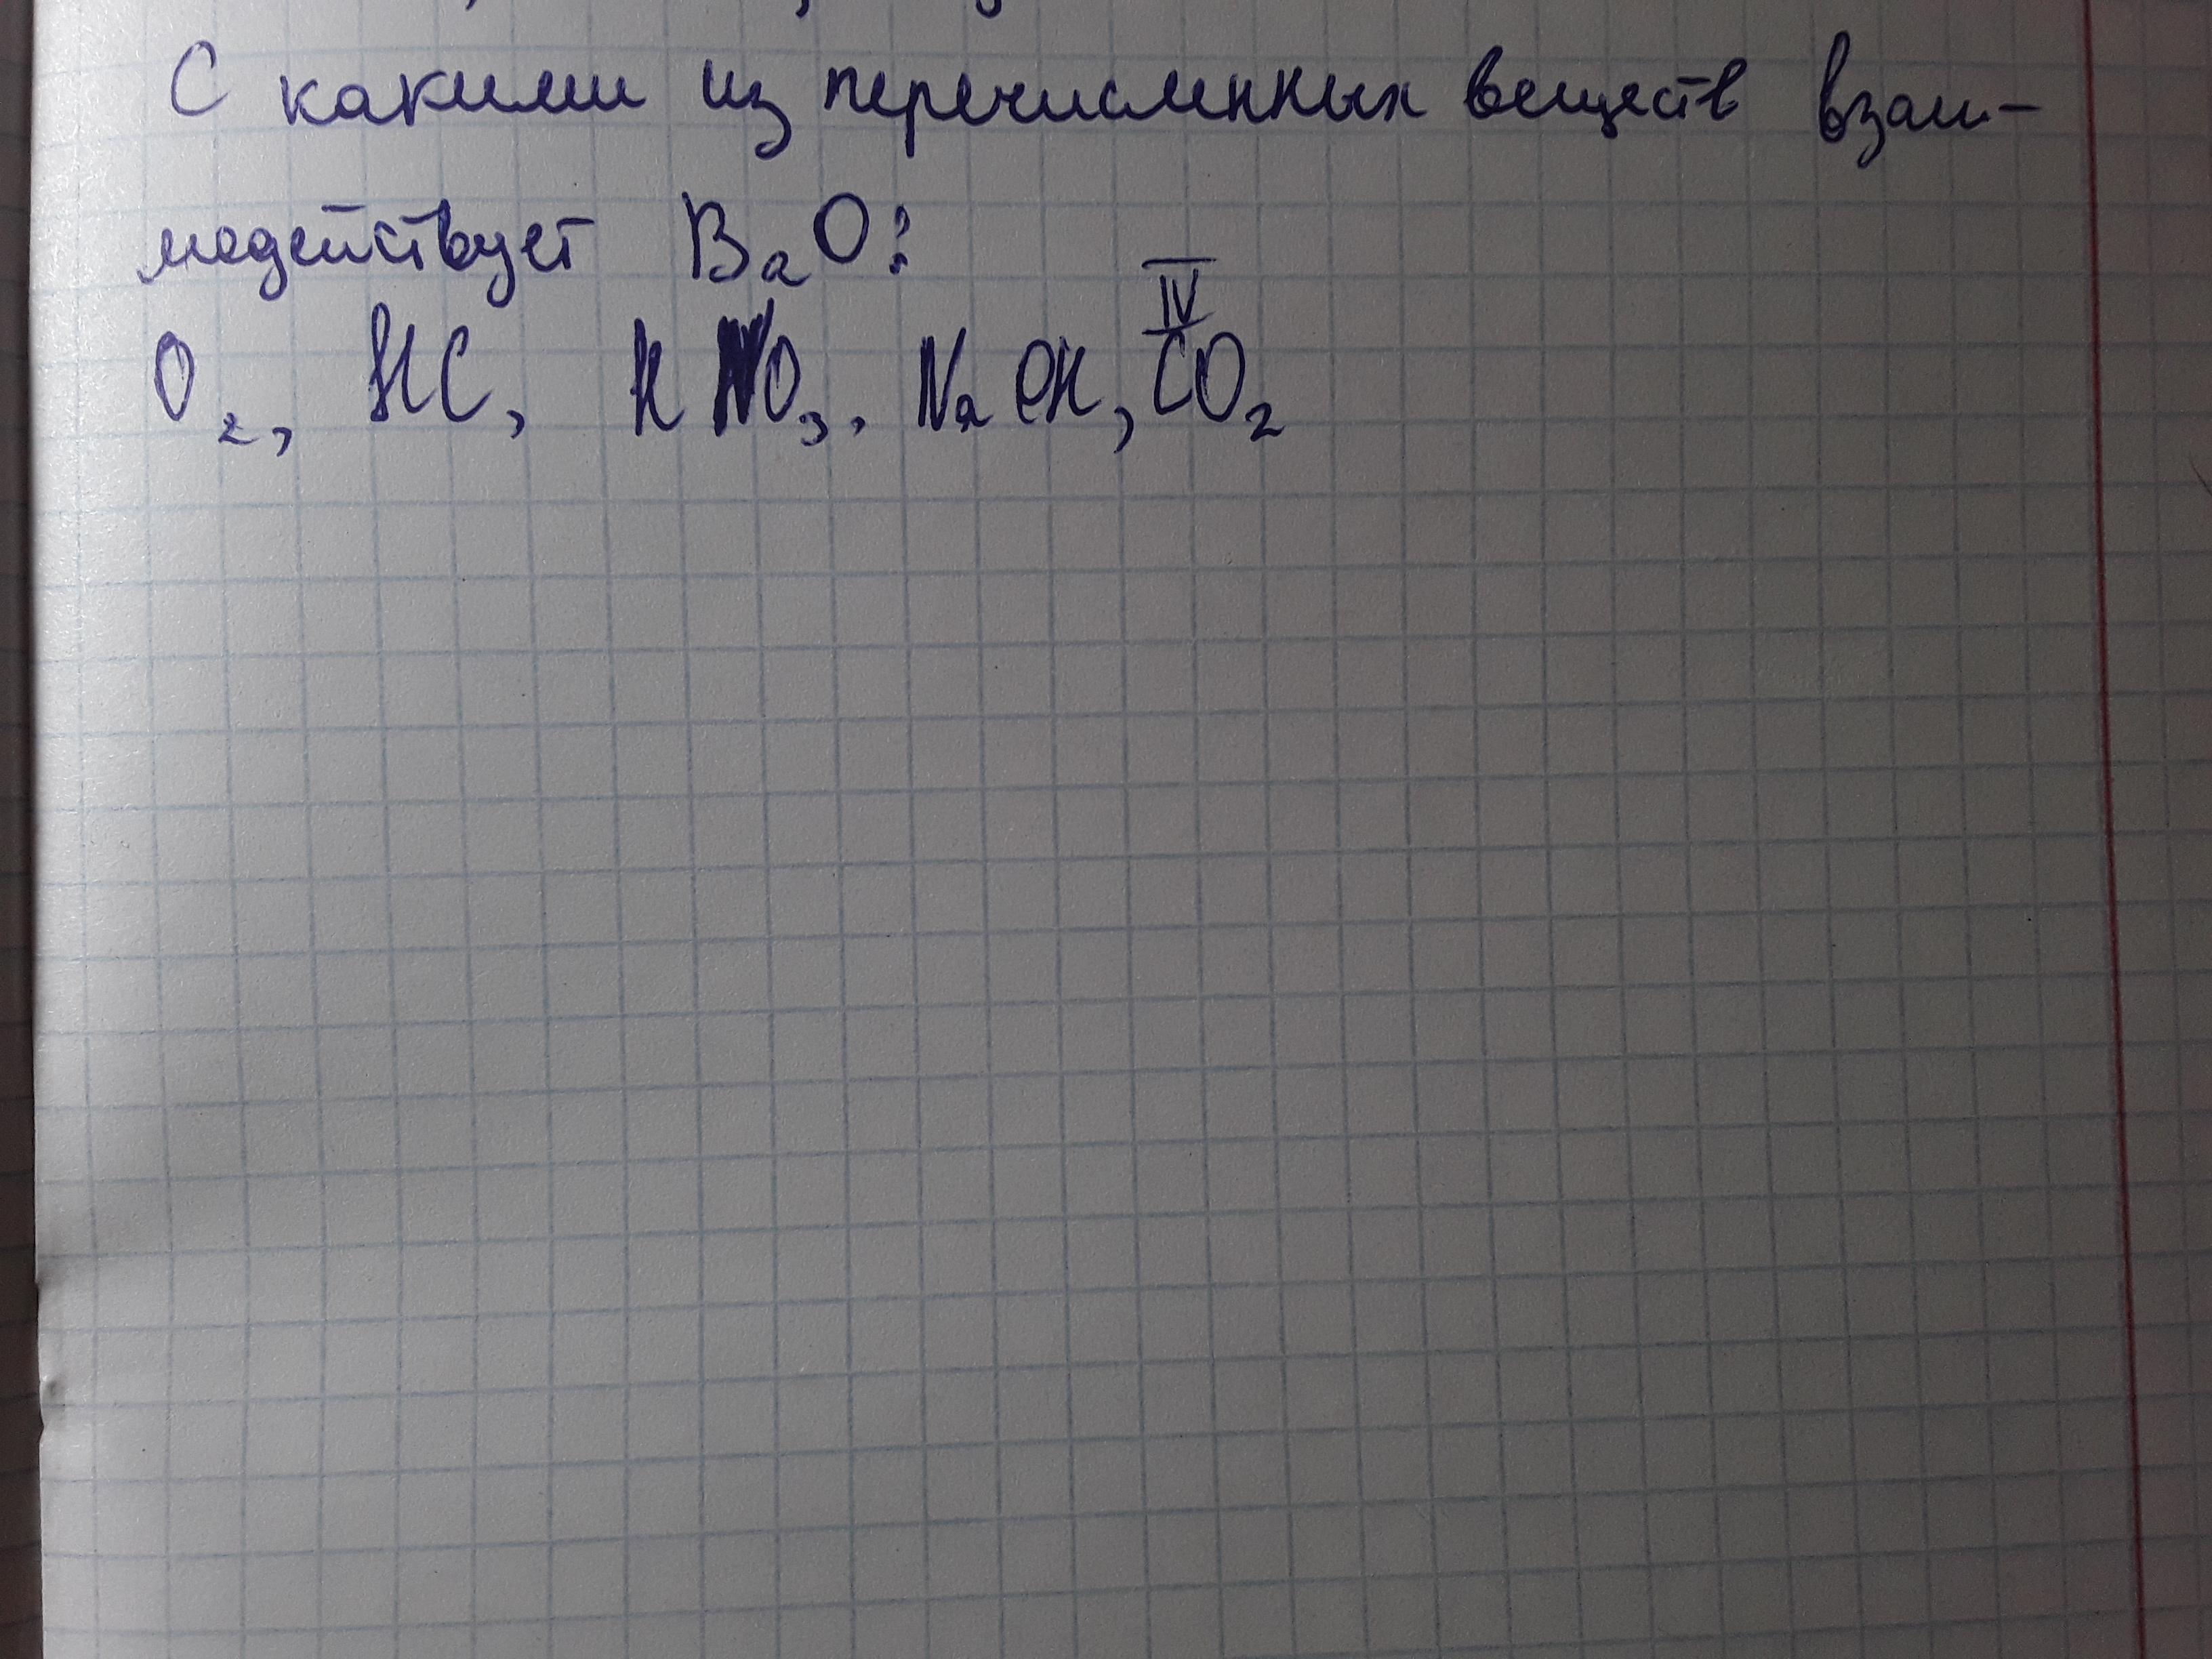 С какими из перечисленных веществ взаи-
модействует BaO:
O₂, HC, KNO₃, NaOH, CO₂
IV